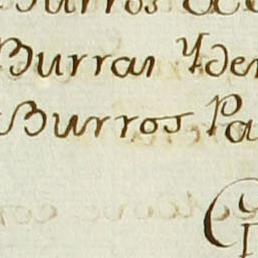 Burros de
Burras Yde
Burros, Pa